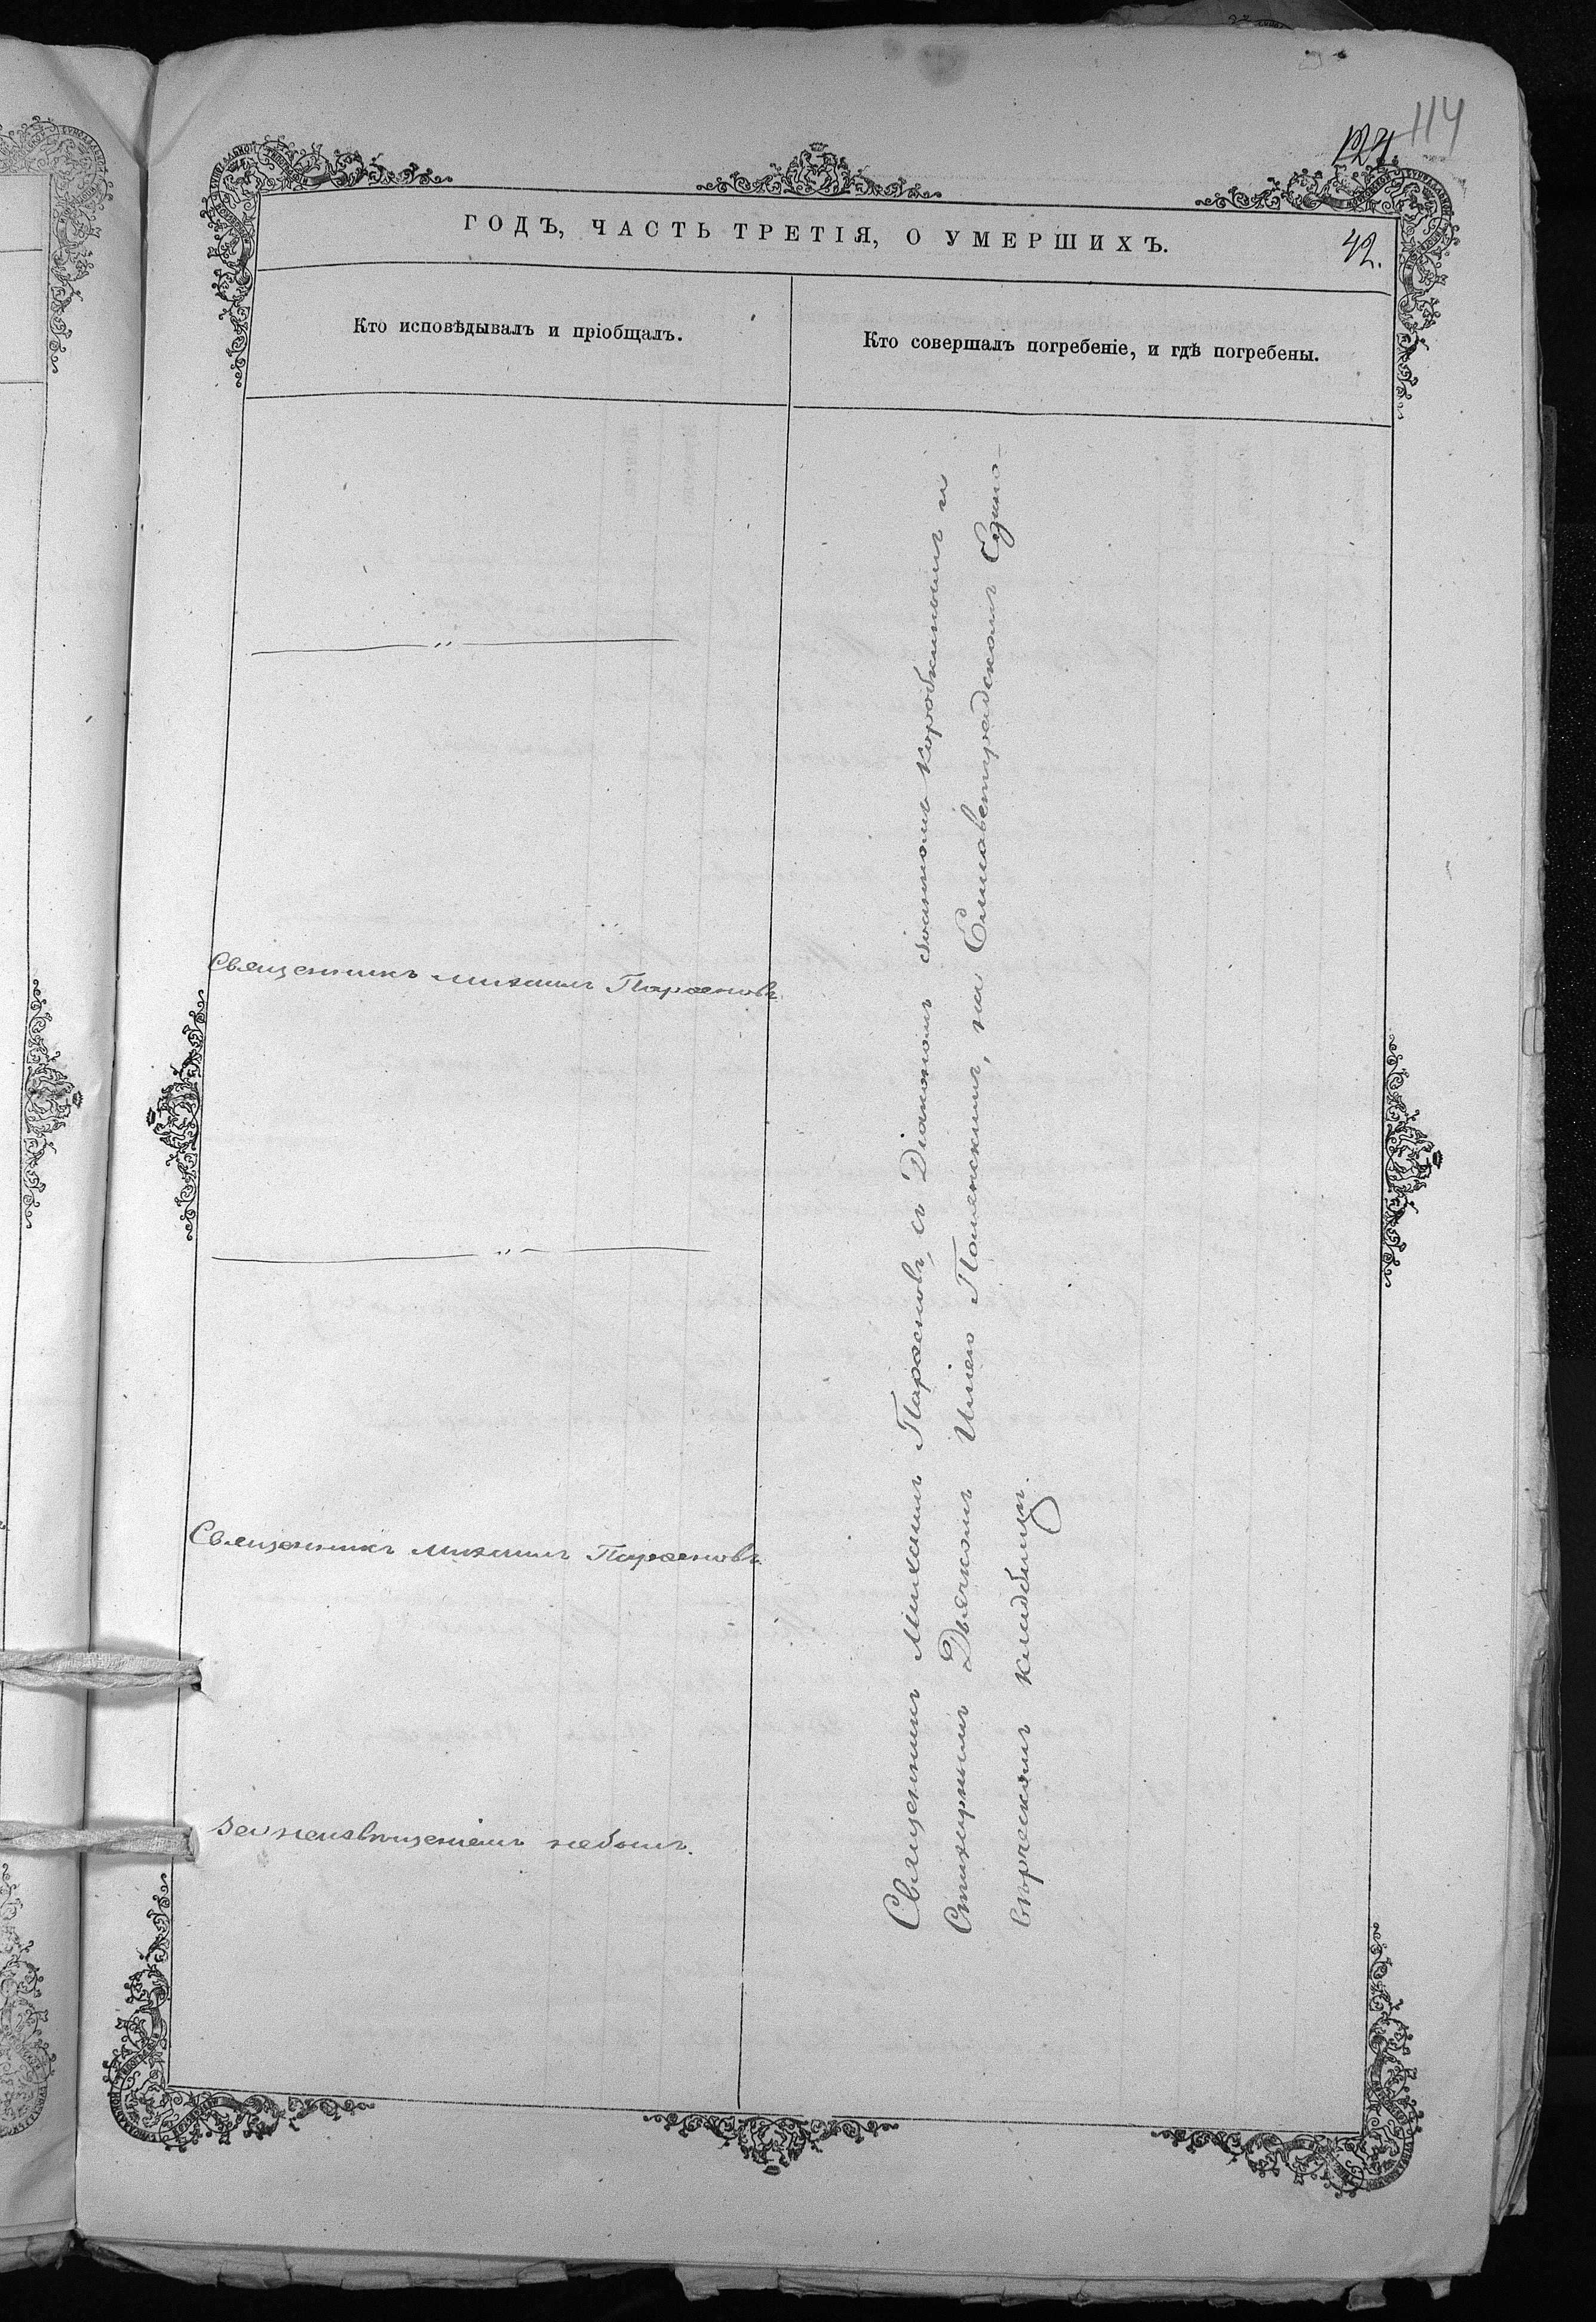 114
124
ГОДЪ, ЧАСТЬ ТРЕТІЯ, О УМЕРШИХЪ.
42.
Кто исповѣдывалъ и пріобщалъ.
Кто совершалъ погребеніе, и гдѣ погребены.
— „ —
Священникъ Михаилъ Парѳеновъ
— „ —
Священникъ Михаилъ Парѳеновъ
За неизвѣщеніемъ небылъ.
Священникъ Михаилъ Парѳеновъ, съ Діакономъ Іоанномъ Коробкинымъ и
Стихарнымъ Дьячкомъ Иліею Поленскимъ, на Елисаветградскомъ Едино-
вѣрческомъ кладбищѣ.